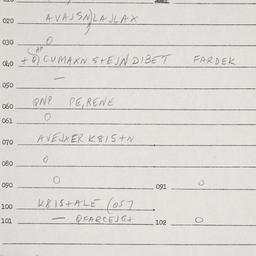 020 AVAJSN)LAJLAX
030 O
040 +0) CUMAXN S+EJN DIBET FARDEK
050 —
060 QNP PE,RENE
061 O
070 AVEJXER K8IS+N
080 O
090 O 091 O
100 K8IS+ALE (057
101 — 102 O